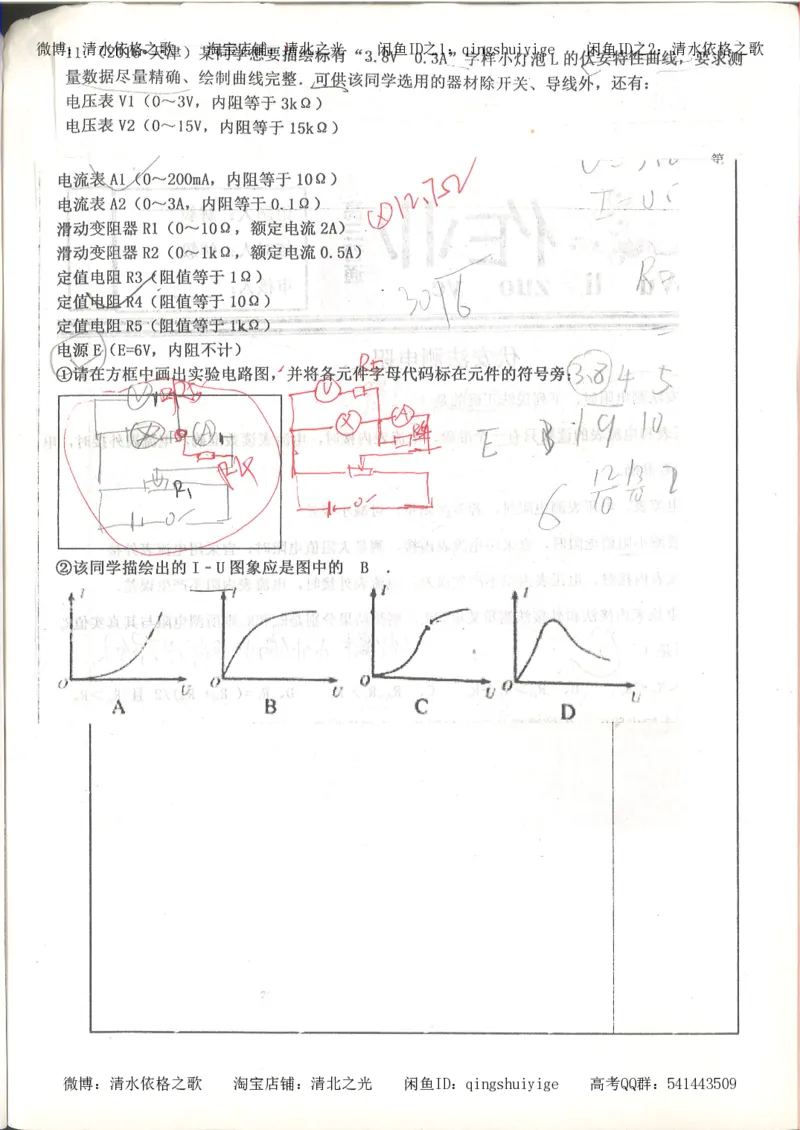 微博：清水依格之歌 淘宝店铺：清北之光 闲鱼ID之1：qingshuiyige 闲鱼ID之2：清水依格之歌
11.（2016•天津）某同学想要描绘标有“3.8V 0.3A”字样小灯泡L的伏安特性曲线，要求测
量数据尽量精确、绘制曲线完整．可供该同学选用的器材除开关、导线外，还有：
电压表V1（0～3V，内阻等于3kΩ）
电压表V2（0～15V，内阻等于15kΩ）
第
电流表A1（0～200mA，内阻等于10Ω）
电流表A2（0～3A，内阻等于0.1Ω）
滑动变阻器R1（0～10Ω，额定电流2A）
滑动变阻器R2（0～1kΩ，额定电流0.5A）
定值电阻R3（阻值等于1Ω）
定值电阻R4（阻值等于10Ω）
定值电阻R5（阻值等于1kΩ）
电源E（E=6V，内阻不计）
①请在方框中画出实验电路图，并将各元件字母代码标在元件的符号旁；
12.7Ω
R5
3.8 4 5
V
A
R1
E
1.9
10
6
②该同学描绘出的I﹣U图象应是图中的 B ．
I I I I
O U O U O U O U
A B C D
微博：清水依格之歌 淘宝店铺：清北之光 闲鱼ID：qingshuiyige 高考QQ群：541443509